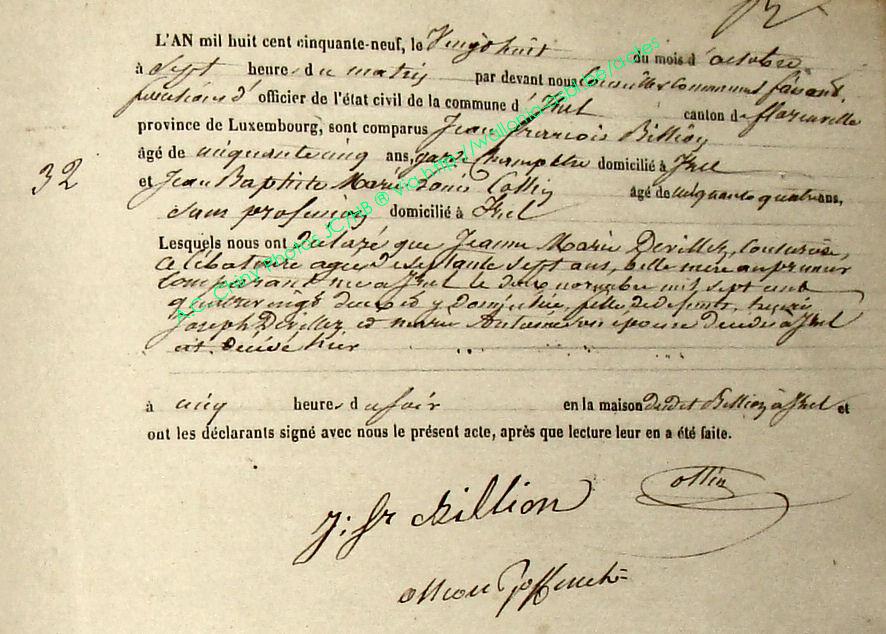 L'AN mil huit cent cinquante-neuf, le Vingt huit du mois d'octobre
à sept heures du matin par devant nous Conseiller Communal faisant
fonctions d' officier de l'état civil de la commune d'Izel canton de florenville
province de Luxembourg, sont comparus Jean francois Billion
âgé de cinquante cinq ans, garde Champêtre domicilié à Izel
32
et Jean Baptiste Marie Louis Collin âgé de cinquante quatre ans,
sans profession domicilié à Izel
Lesquels nous ont declaré que Jeanne Marie Devillez, Couturière,
Célibataire agée de septante sept ans, belle mère au premier
Comparant née à Izel le douze novembre mil sept cent
quatre vingt deux et y domiciliée, fille de defunts, henri
Joseph Devillez, et marie Antoine son épouse decedés à Izel
est décédé hier
à cinq heures du soir en la maison dudit Billion à Izel et
ont les déclarants signé avec nous le présent acte, après que lecture leur en a été faite.
J: fr Billion
A.C. Chiny Photos JC/NB ® via http://wallonia2.csbr.be/actes